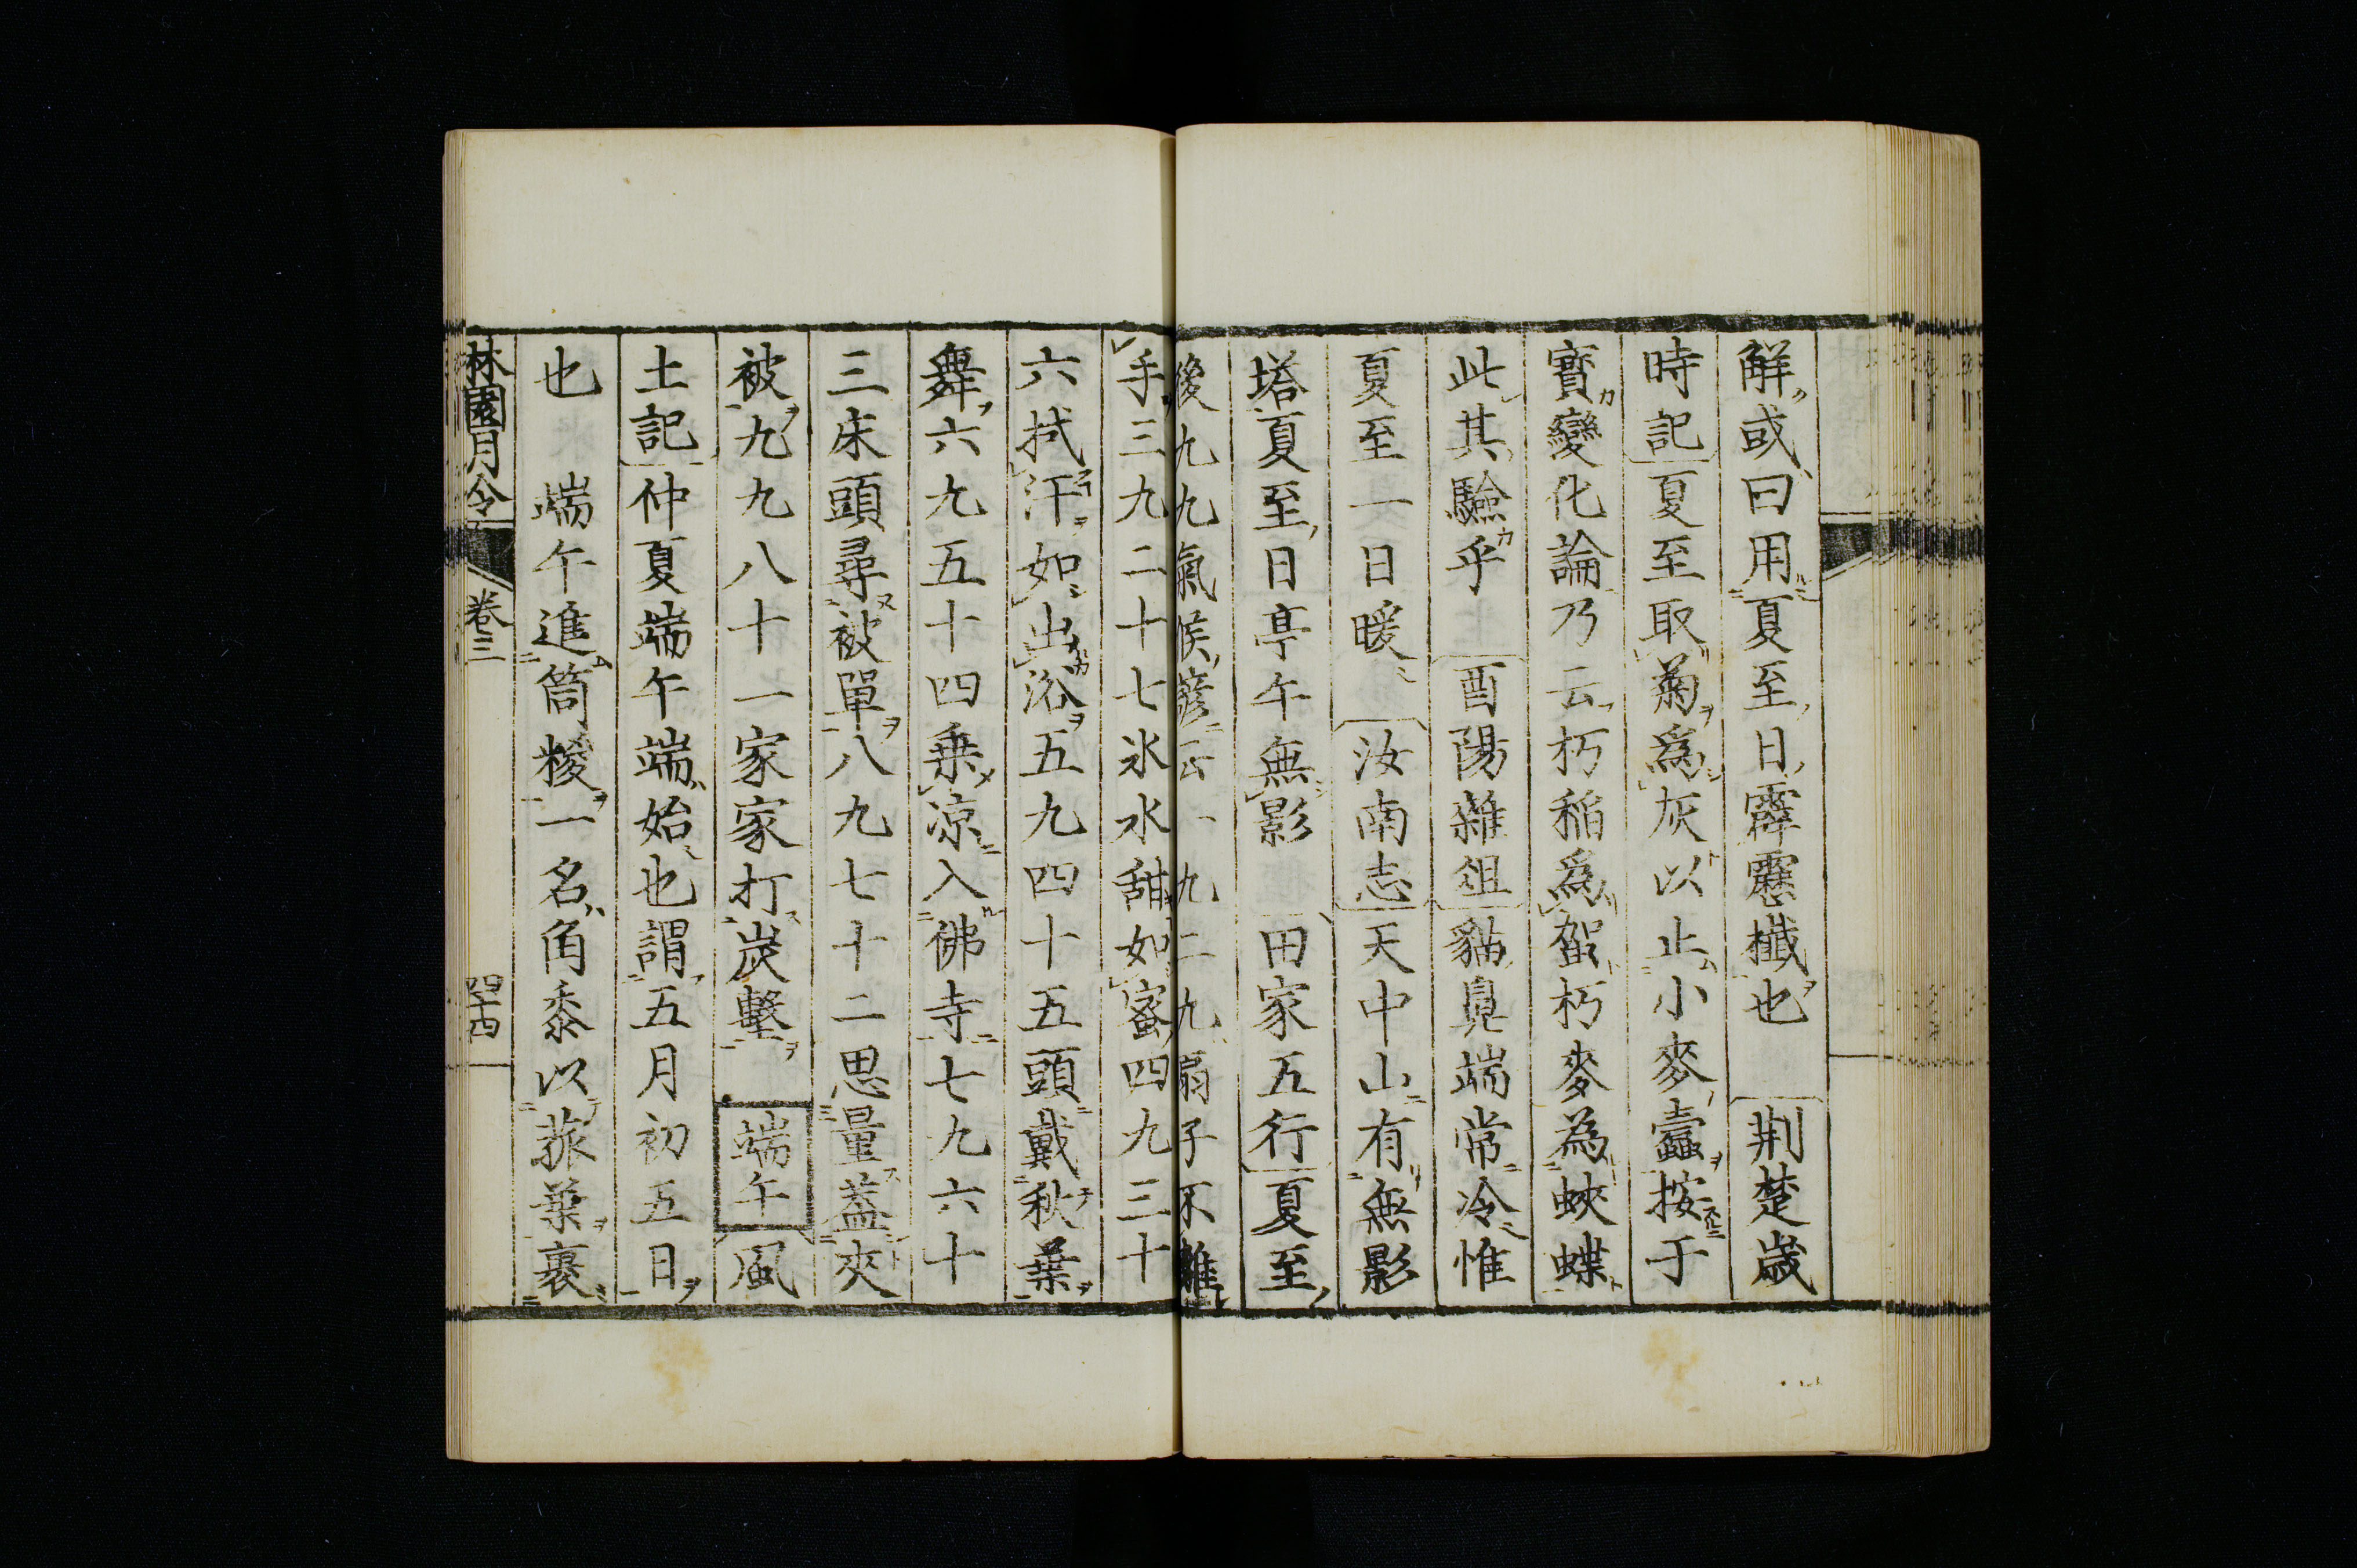 解或曰用夏至日霹靂櫼也　荆楚歲
時記夏至取菊爲灰以止小麥蠹按于
寶變化論乃云朽稲爲𧌑朽麥為蛺蝶
此其驗乎　酉陽雜俎貓鼻端常冷惟
夏至一日暖　汝南志天中山有無影
塔夏至日亭午無影　田家五行夏至
後九九氣候諺云一九二九扇子不離
手三九二十七氷水甜如蜜四九三十
六拭汗如出浴五九四十五頭戴秋葉
舞六九五十四乗凉入佛寺七九六十
三床頭尋被單八九七十二思量葢夾
被九九八十一家家打炭墼　端午風
土記仲夏端午端始也謂五月初五日
也　端午進筒糉一名角黍以菰葉裹
林園月令　卷三　四十四